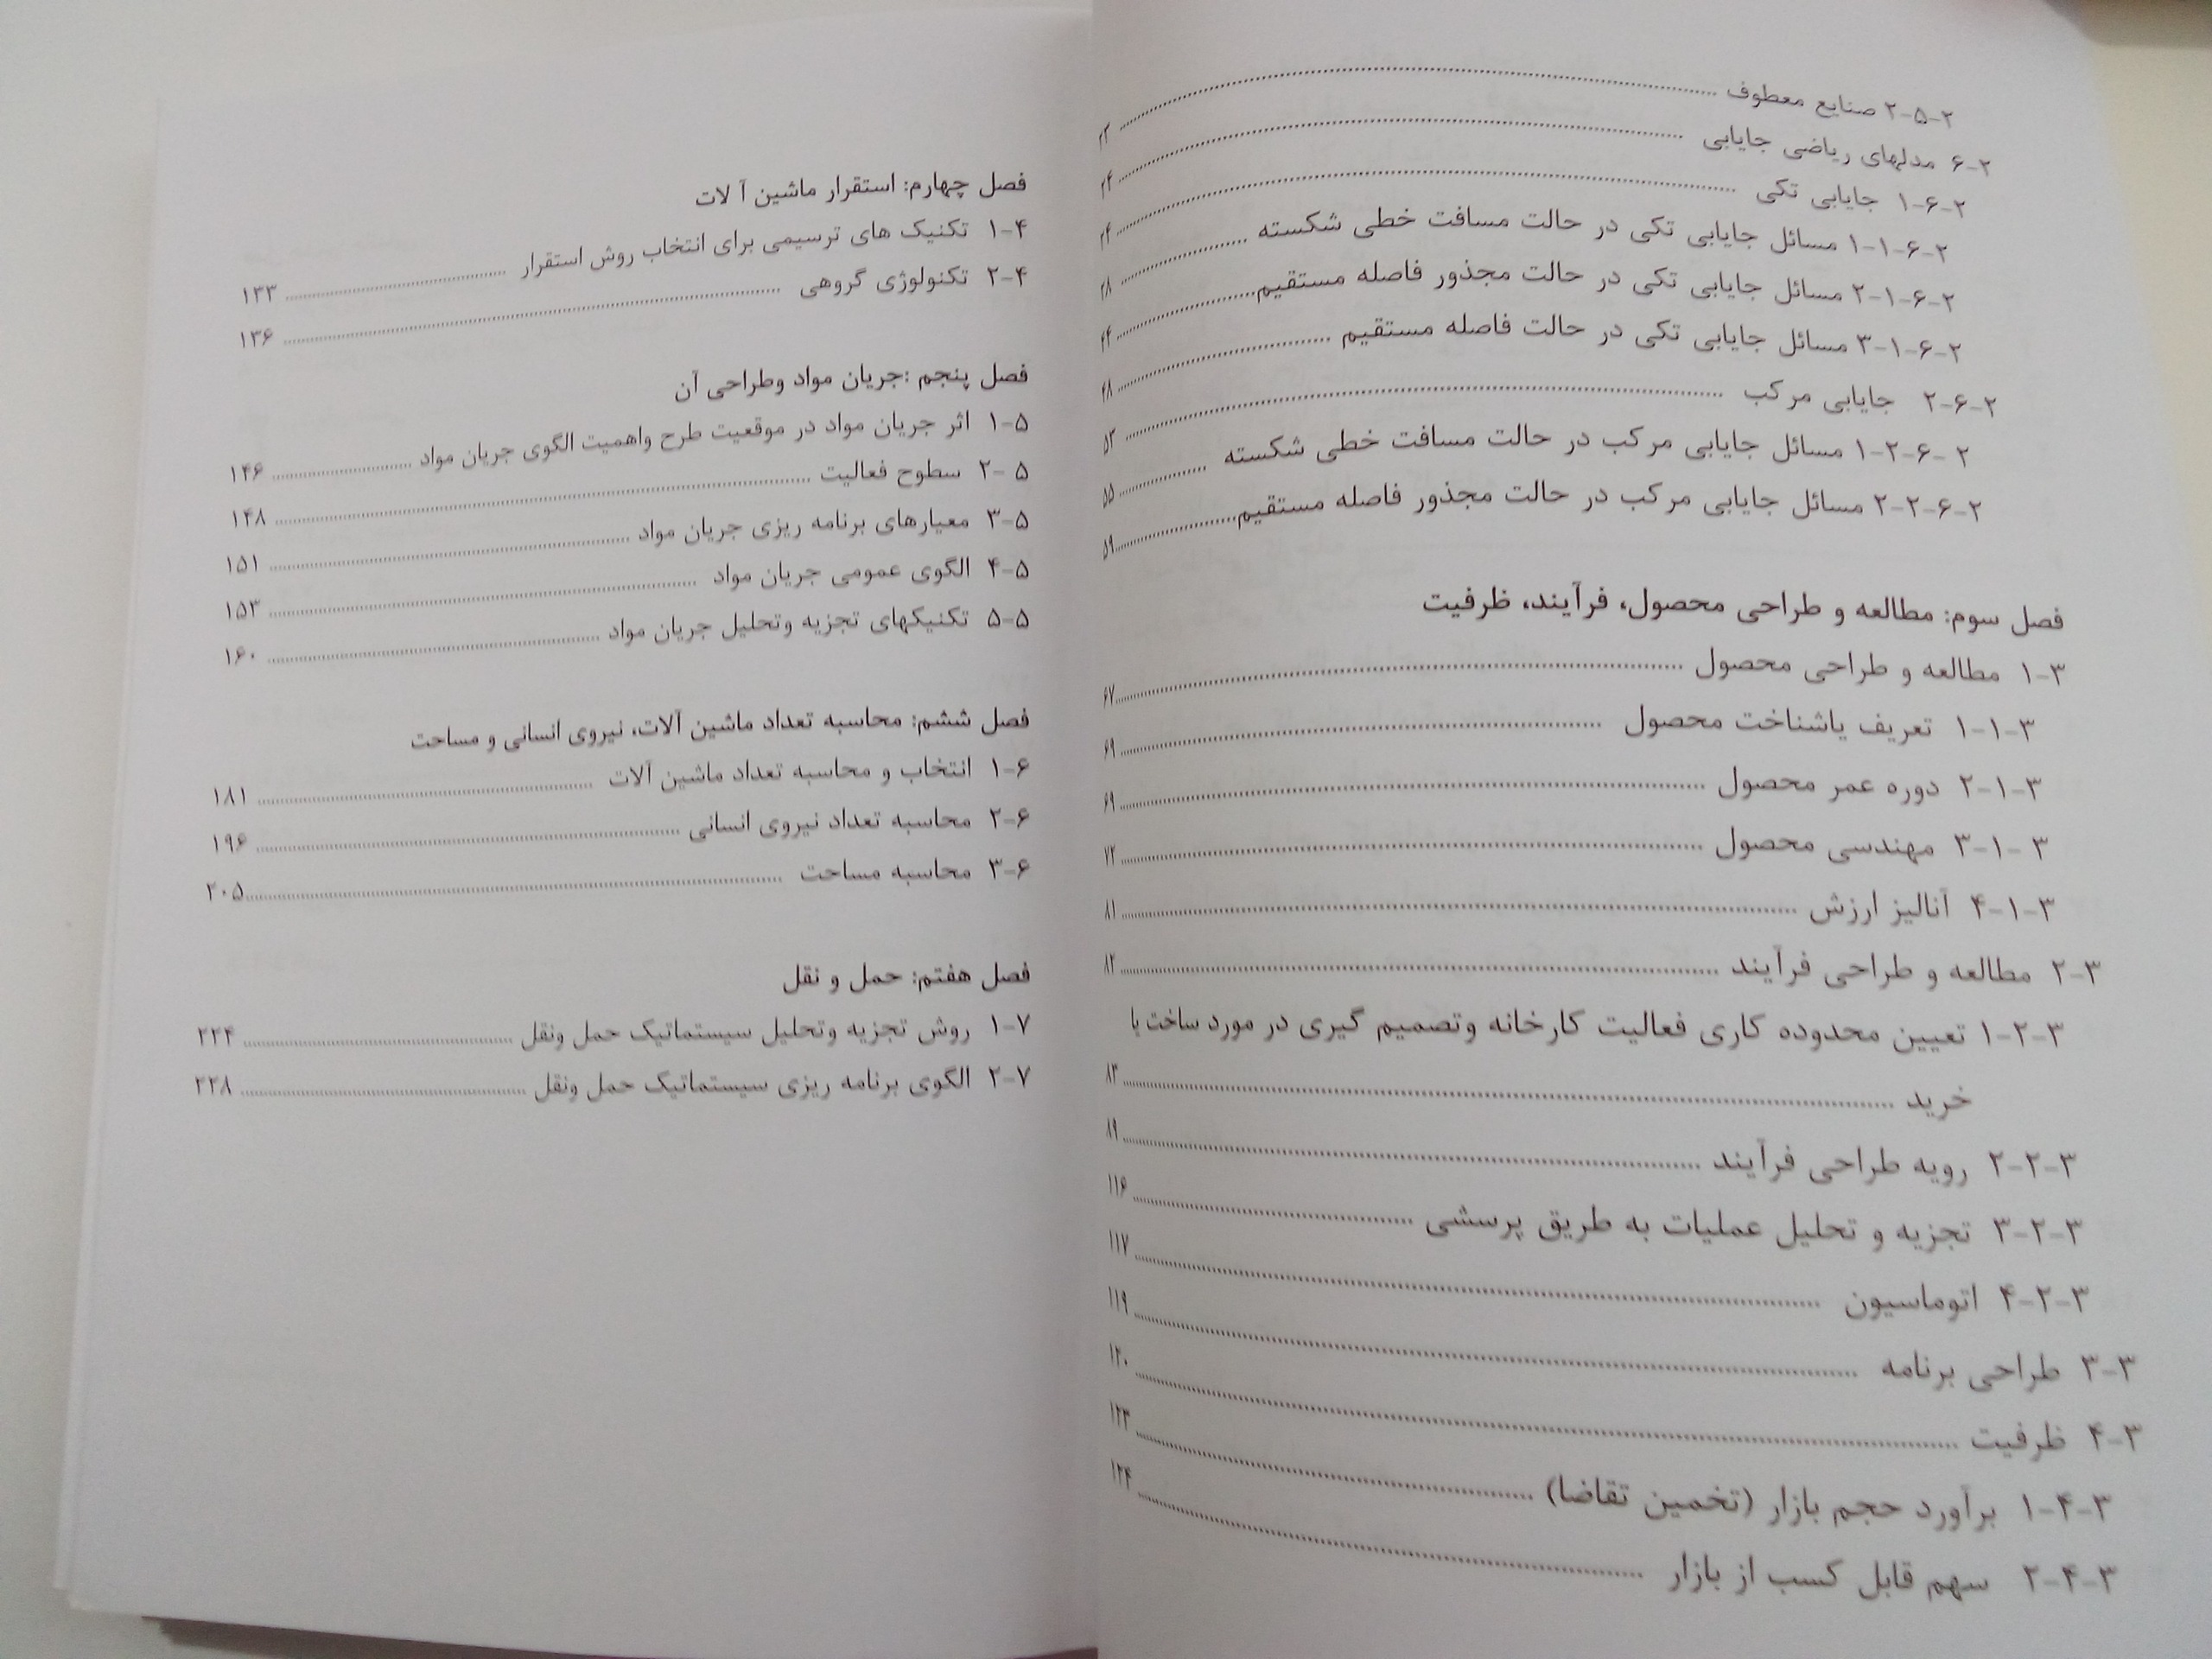 ۲-۵-۲ صنایع معطوف ........ ۲۳
۲-۶ مدلهای ریاضی جایابی ........ ۲۴
۲-۶-۱ جایابی تکی ........ ۲۴
۲-۶-۱-۱ مسائل جایابی تکی در حالت مسافت خطی شکسته ........ ۲۸
۲-۶-۱-۲ مسائل جایابی تکی در حالت مجذور فاصله مستقیم ........ ۴۴
۲-۶-۱-۳ مسائل جایابی تکی در حالت فاصله مستقیم ........ ۴۸
۲-۶-۲ جایابی مرکب ........ ۵۳
۲-۶-۲-۱ مسائل جایابی مرکب در حالت مسافت خطی شکسته ........ ۵۵
۲-۶-۲-۲ مسائل جایابی مرکب در حالت مجذور فاصله مستقیم ........ ۵۹
فصل سوم: مطالعه و طراحی محصول، فرآیند، ظرفیت
۳-۱ مطالعه و طراحی محصول ........ ۶۷
۳-۱-۱ تعریف یاشناخت محصول ........ ۶۹
۳-۱-۲ دوره عمر محصول ........ ۶۹
۳-۱-۳ مهندسی محصول ........ ۷۲
۳-۱-۴ آنالیز ارزش ........ ۸۱
۳-۲ مطالعه و طراحی فرآیند ........ ۸۲
۳-۲-۱ تعیین محدوده کاری فعالیت کارخانه وتصمیم گیری در مورد ساخت یا
خرید ........ ۸۳
۳-۲-۲ رویه طراحی فرآیند ........ ۸۹
۳-۲-۳ تجزیه و تحلیل عملیات به طریق پرسشی ........ ۱۱۶
۳-۲-۴ اتوماسیون ........ ۱۱۷
۳-۳ طراحی برنامه ........ ۱۱۹
۳-۴ ظرفیت ........ ۱۲۰
۳-۴-۱ برآورد حجم بازار (تخمین تقاضا) ........ ۱۲۳
۳-۴-۲ سهم قابل کسب از بازار ........ ۱۲۴
فصل چهارم: استقرار ماشین آ لات
۴-۱ تکنیک های ترسیمی برای انتخاب روش استقرار ........ ۱۳۳
۴-۲ تکنولوژی گروهی ........ ۱۳۶
فصل پنجم :جریان مواد وطراحی آن
۵-۱ اثر جریان مواد در موقعیت طرح واهمیت الگوی جریان مواد ........ ۱۴۶
۵ -۲ سطوح فعالیت ........ ۱۴۸
۵-۳ معیارهای برنامه ریزی جریان مواد ........ ۱۵۱
۵-۴ الگوی عمومی جریان مواد ........ ۱۵۳
۵-۵ تکنیکهای تجزیه وتحلیل جریان مواد ........ ۱۶۰
فصل ششم: محاسبه تعداد ماشین آلات، نیروی انسانی و مساحت
۶-۱ انتخاب و محاسبه تعداد ماشین آلات ........ ۱۸۱
۶-۲ محاسبه تعداد نیروی انسانی ........ ۱۹۶
۶-۳ محاسبه مساحت ........ ۲۰۵
فصل هفتم: حمل و نقل
۷-۱ روش تجزیه وتحلیل سیستماتیک حمل ونقل ........ ۲۲۴
۷-۲ الگوی برنامه ریزی سیستماتیک حمل ونقل ........ ۲۲۸